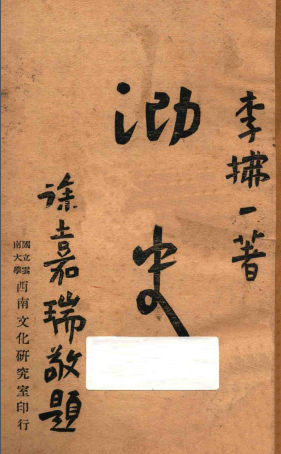 李拂一著
泐史
徐嘉瑞敬題
國立雲南大學西南文化研究室印行